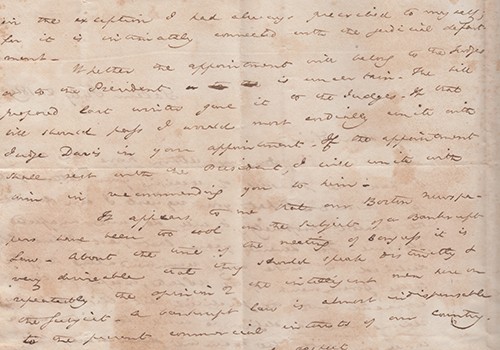 in the exception I had always prescribed to myself,
for it is intimately connected with the judicial depart
ment.
Whether the appointment will belong to the Judges
or to the President is uncertain. The bill
proposed last winter gave it to the Judges. If that
bill should pass I would most cordially unite with
Judge Davis in your appointment. If the appointment
shall rest with the President, I will unite with
him in recommending you to him.
It appears to me that our Boston newspa-
pers have been too cool on the subject of a Bankrupt
Law. About the time of the meeting of Congress it is
very desireable that they should speak distinctly &
repeatedly the opinion of the intelligent men here on
the subject. A bankrupt law is almost indispensable
to the present commercial interests of our country.
respect